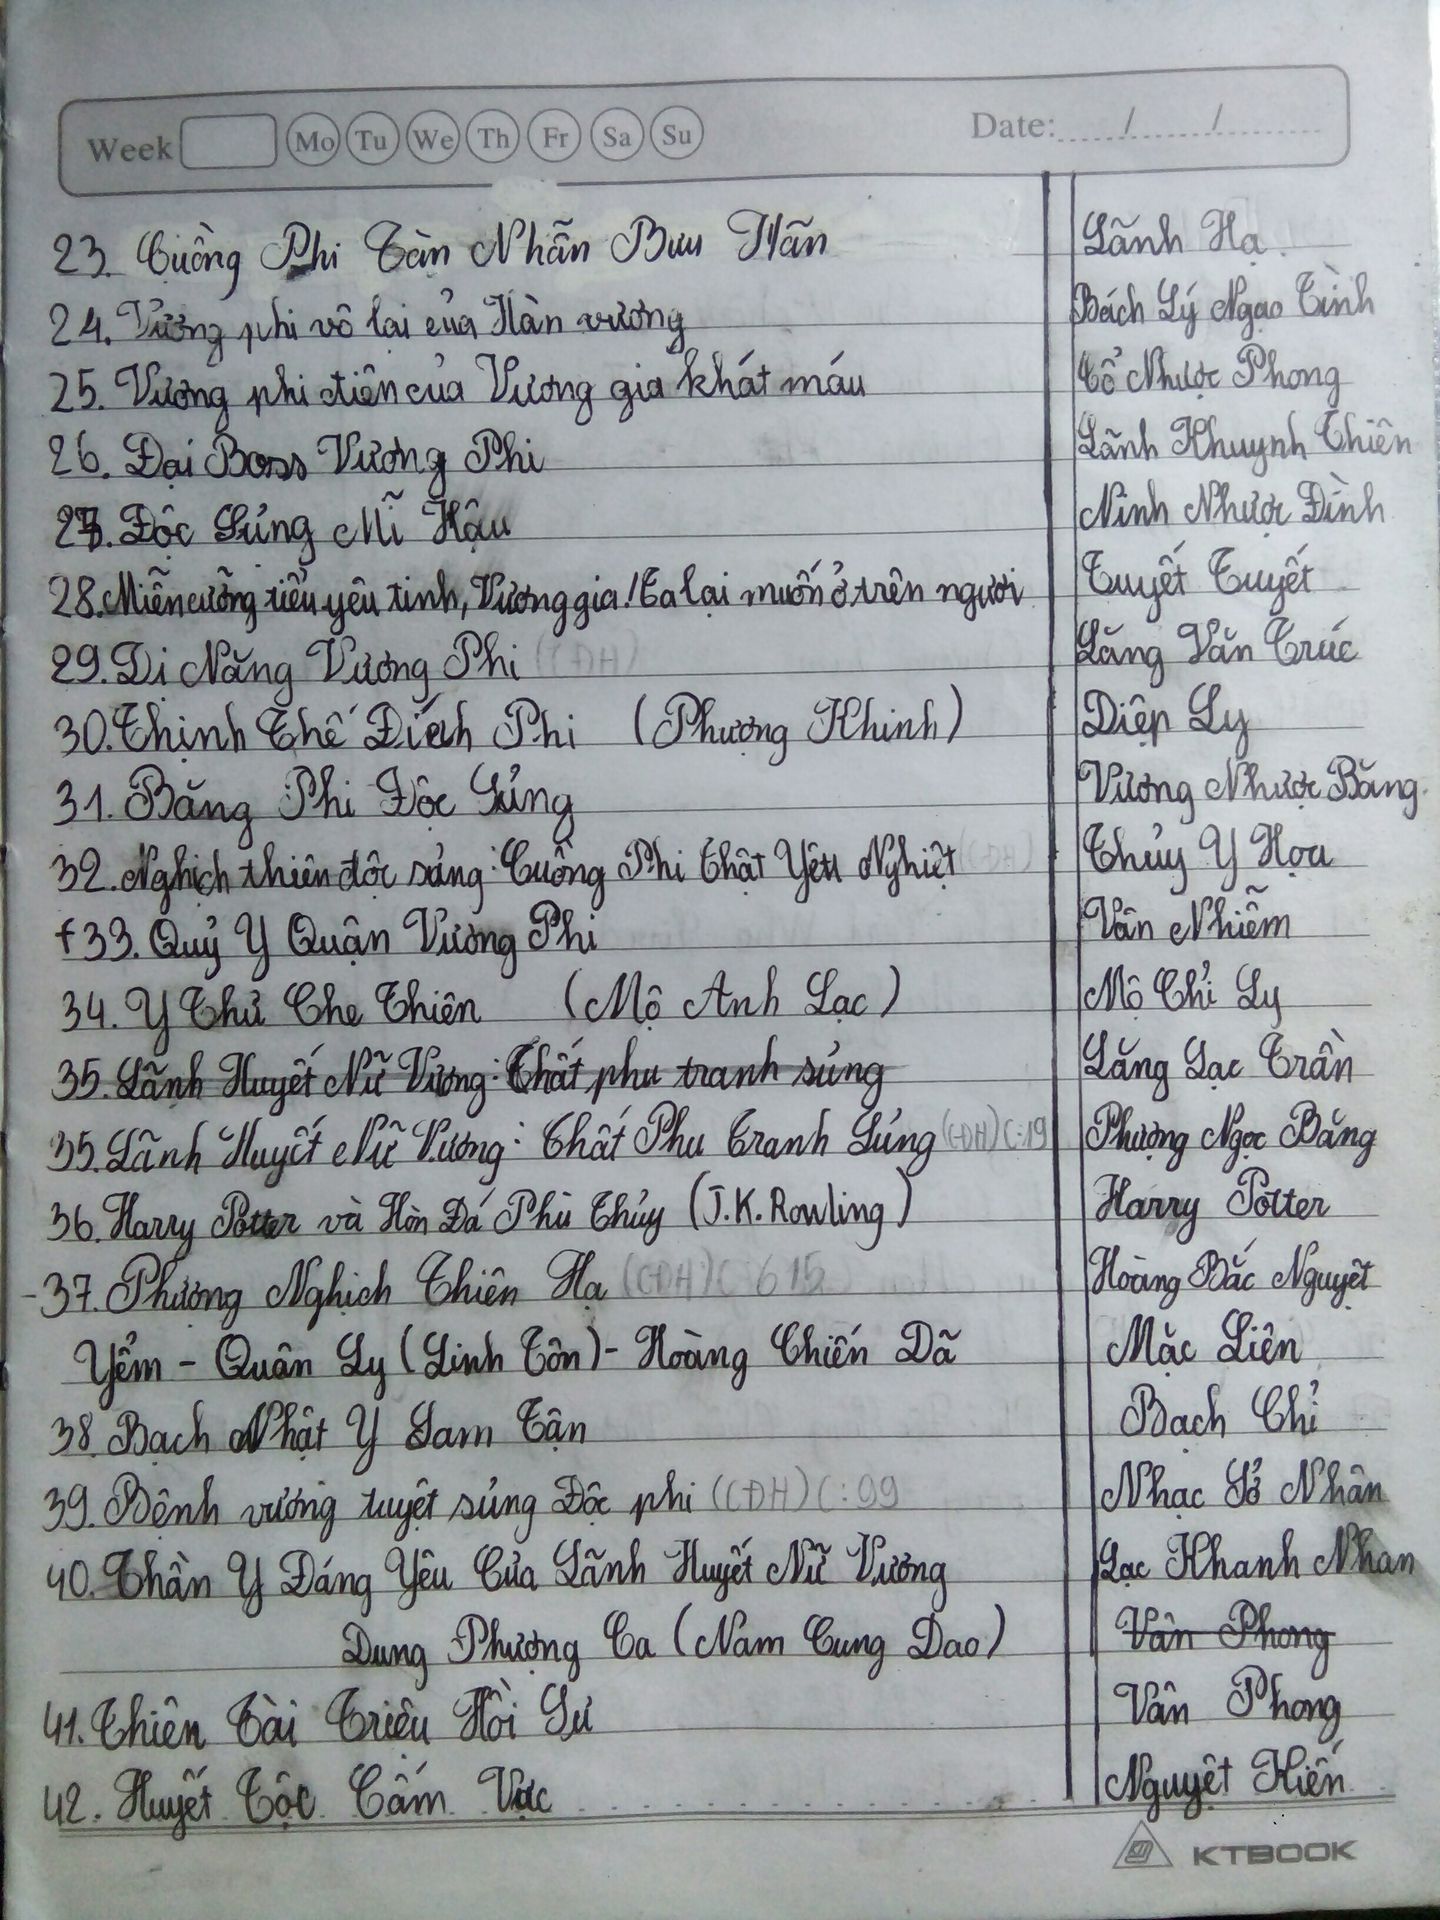 Week Mo Tu We Th Fr Sa Su Date: ..... / ....... / ..........
23. Cuồng Phi Tàn Nhẫn Bưu Hãn Lãnh Hạ
24. Vương phi vô lại của Hàn vương Bách Lý Ngạo Tình
25. Vương phi điên của Vương gia khát máu Cổ Nhược Phong
26. Đại Boss Vương Phi Lãnh Khuynh Thiên
27. Độc Sủng Mĩ Hậu Ninh Nhược Đình
28. Miễn cưỡng tiểu yêu tinh, Vương gia! Ta lại muốn ở trên ngươi Tuyết Tuyết
29. Dị Năng Vương Phi (CĐH) Lăng Vân Trúc
30. Thịnh Thế Đích Phi (Phượng Khinh) Diệp Ly
31. Băng Phi Độc Sủng Vương Nhược Băng
32. Nghịch thiên độc sủng: Cuồng Phi Thật Yêu Nghiệt (CĐH) Thủy Y Họa
33. Quỷ Y Quận Vương Phi Vân Nhiễm
34. Y Thủ Che Thiên (Mộ Anh Lạc) Mộ Chỉ Ly
35. Lãnh Huyết Nữ Vương: Thất phu tranh sủng Lăng Lạc Trần
35. Lãnh Huyết Nữ Vương: Thất Phu Tranh Sủng (CĐH) C:19 Phượng Ngọc Băng
36. Harry Potter và Hòn Đá Phù Thủy (J.K.Rowling) Harry Potter
-37. Phượng Nghịch Thiên Hạ (CĐH) C:615 Hoàng Bắc Nguyệt
Yểm - Quân Ly (Linh Tôn) - Hoàng Chiến Dã Mặc Liên
38. Bạch Nhật Y Sam Tận Bạch Chỉ
39. Bệnh vương tuyệt sủng Độc phi (CĐH) C:99 Nhạc Sở Nhân
40. Thần Y Đáng Yêu Của Lãnh Huyết Nữ Vương Lạc Khanh Nhan
Dung Phượng Ca (Nam Cung Dao) Vân Phong
41. Thiên Tài Triệu Hồi Sư Vân Phong
42. Huyết Tộc Cấm Vực Nguyệt Kiến
KTBOOK